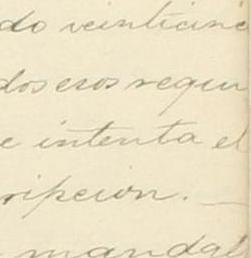 do veinticinc
dos esos requi
e intenta el
ripcion. —
mandat